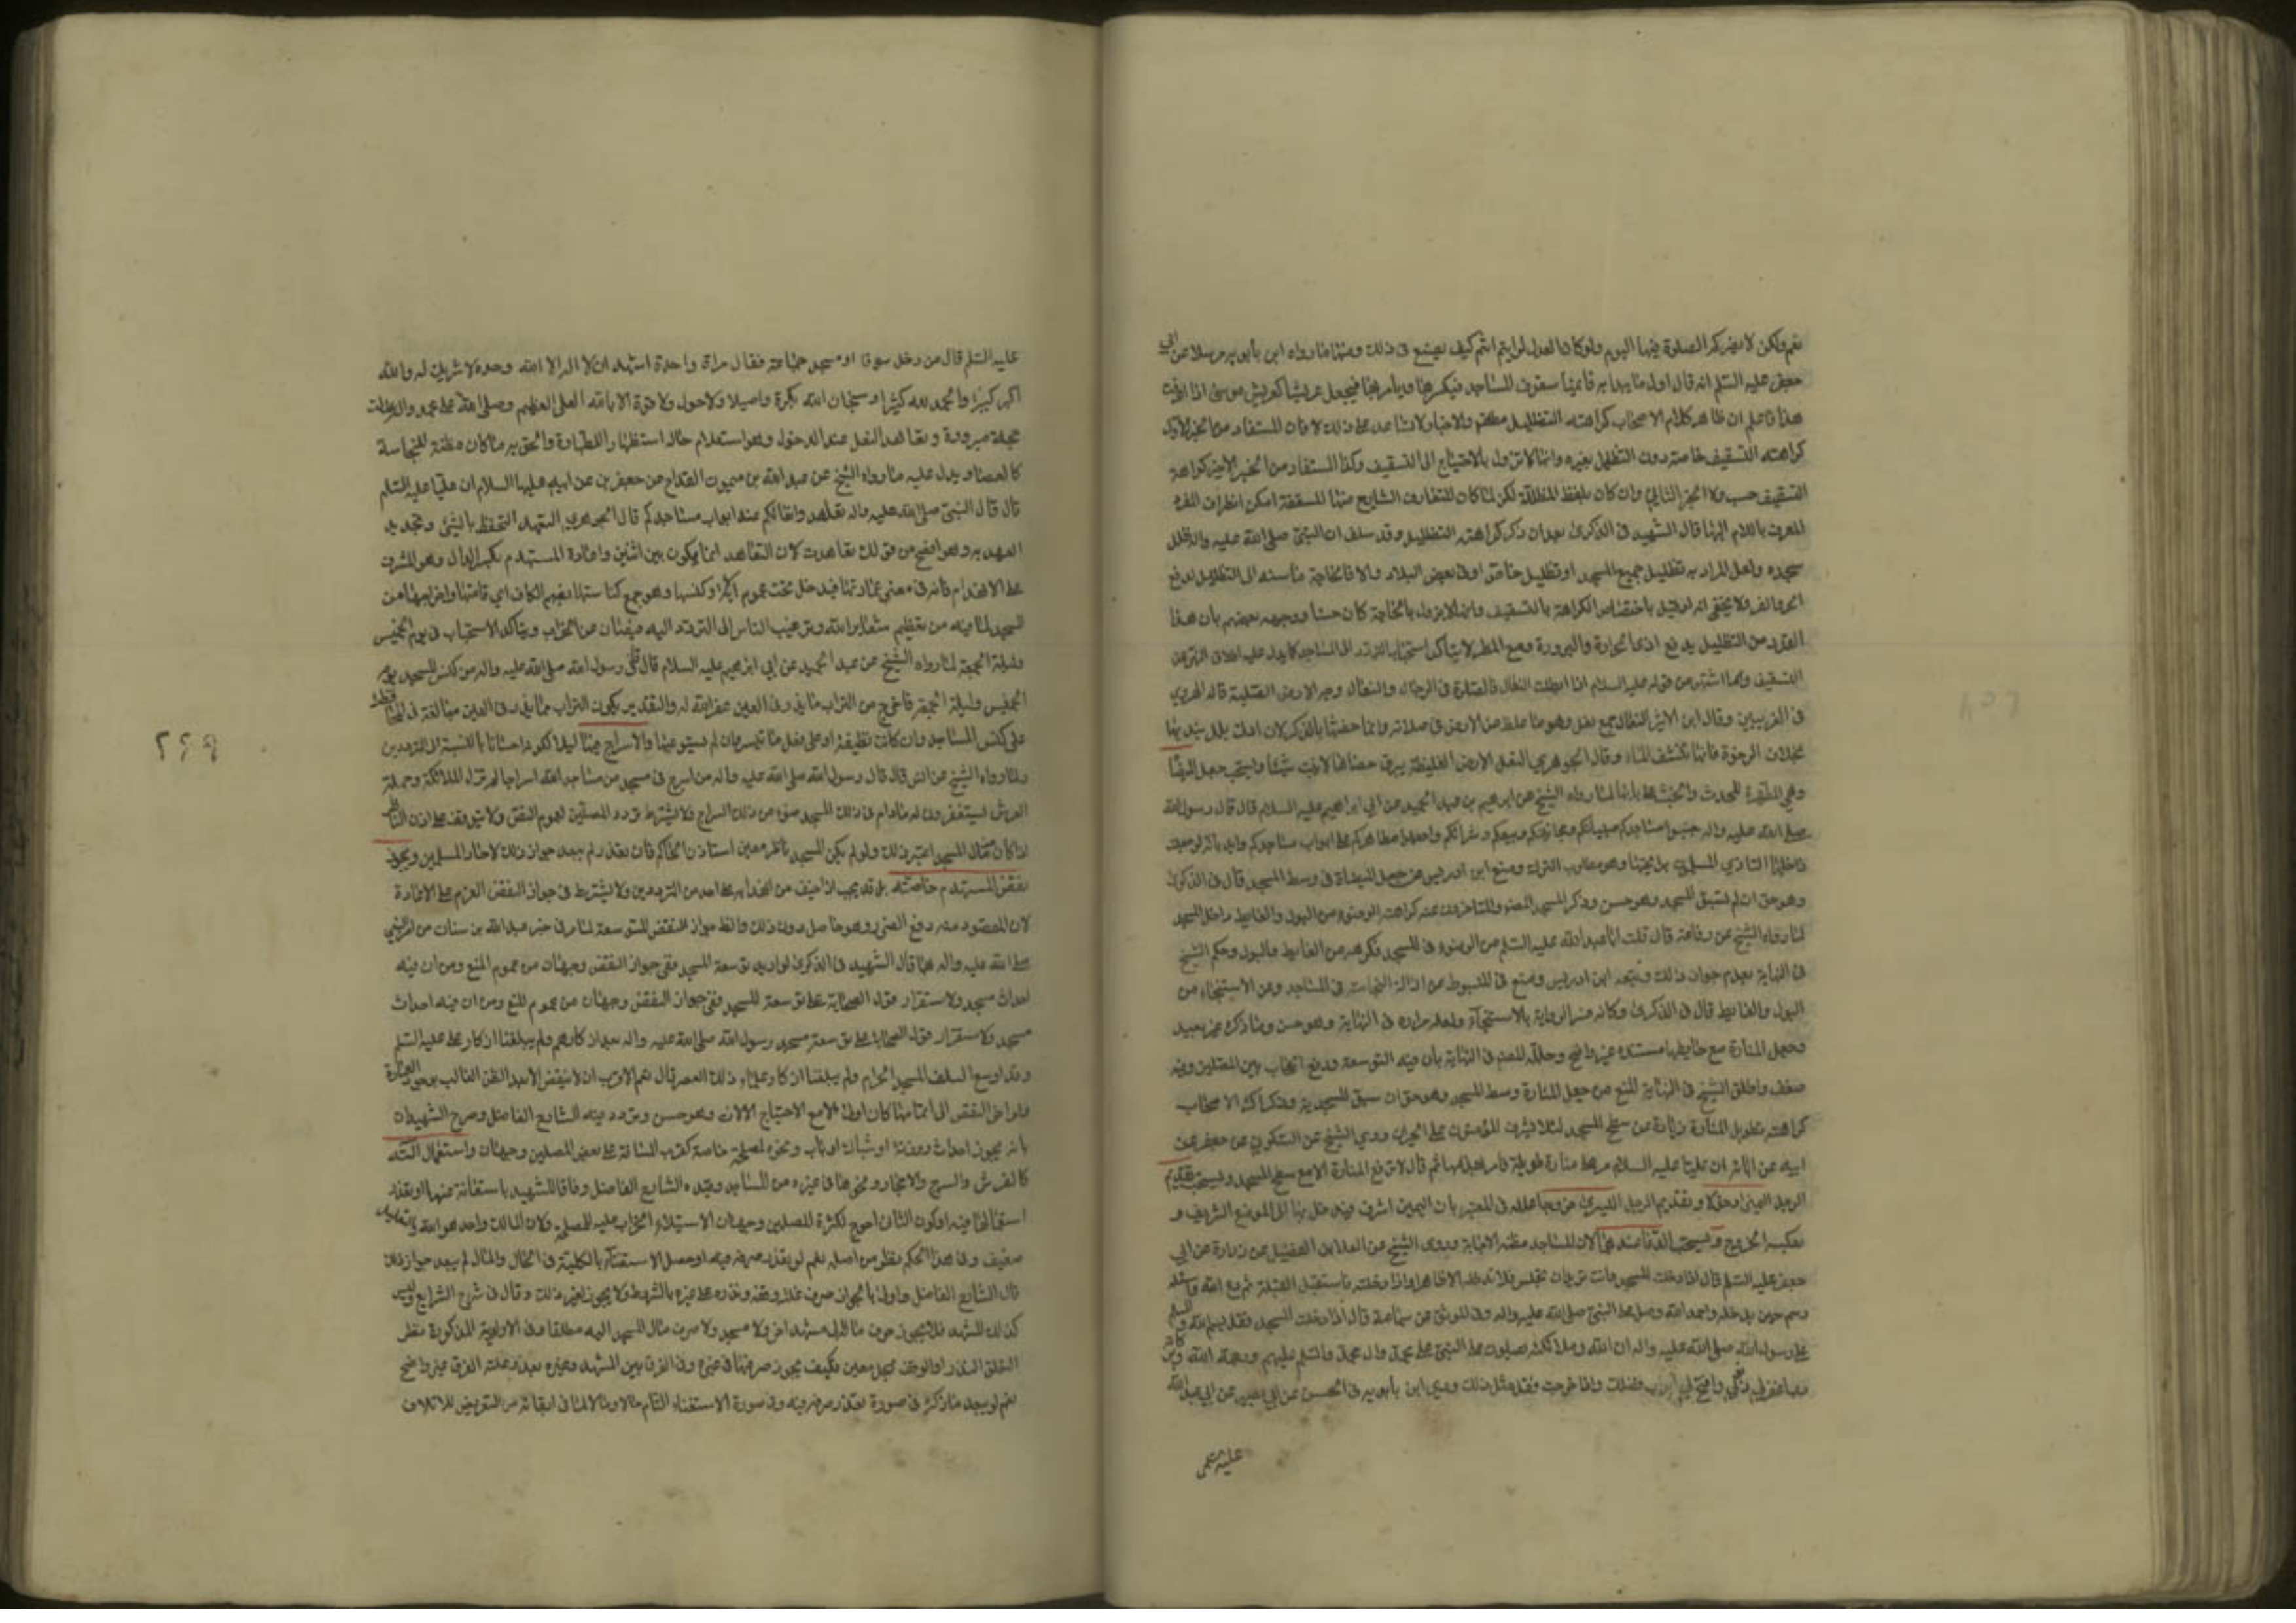 نعم ولكن لا يضركم الصلوة فيها اليوم ولو كان العدل لرايتم انتم كيف يصنع فى ذلك ومنها ما رواه ابن بابويه مرسلا عن ابي
جعفر عليه السلم انه قال اول ما يبدا به قائمنا سقوف المساجد فيكسرها ويامر بها فيجعل عريشا كعريش موسى اذا عرفت
هذا فاعلم ان ظاهر كلام الاصحاب كراهة التظليل مطلقا والاخبار لا تساعد على ذلك لان المستفاد من الخبر الاول
كراهة التسقيف خاصة دون التظليل بغيره وانها لا تزول بالاحتياج الى التسقيف وكذا المستفاد من الخبر الاخير كراهة
التسقيف حسب
المعرف باللام اليها قال الشهيد فى الذكرى بعد ان ذكر كراهة التظليل وقد سلف ان النبي صلى الله عليه واله ظلل
مسجده ولعل المراد به تظليل جميع المسجد او تظليل خاص او فى بعض البلاد والا فالحاجة ماسة الى التظليل لدفع
الحر والقر ولا يخفى انه لو قيل باختصاص الكراهة بالتسقيف وانها لا تزول بالحاجة كان حسنا ووجهه بعضهم بان هذا
القدر من التظليل يدفع اذى الحرارة والبرودة ومع المطر لا يتاكد استحباب التردد الى المساجد كما يدل عليه اطلاق النهي عن
التسقيف وما اشتهر من قوله عليه السلام اذا ابتلت النعال فالصلوة فى الرحال والنعال وجه الارض الصلبة قاله الهروي
فى الغريبين وقال ابن الاثير النعال جمع نعل وهو ما غلظ من الارض فى صلابة وانما خصها بالذكر لان ادنى بلل ينديها
بخلاف الرخوة فانها تنشف الماء وقال الجوهري النعل الارض الغليظة يبرق حصاها لا تنبت شيئا ويستحب جعل الميضاة
وهي المطهرة للحدث والخبث على بابها لما رواه الشيخ عن ابراهيم بن عبد الحميد عن ابي ابراهيم عليه السلام قال قال رسول الله
صلى الله عليه واله جنبوا مساجدكم صبيانكم ومجانينكم وبيعكم وشرائكم واجعلوا مطاهركم على ابواب مساجدكم ولانه لو جعلت
داخلها لتاذي المسلمون برائحتها وهو مطلوب الترك ومنع ابن ادريس من جعل الميضاة فى وسط المسجد قال فى الذكرى
وهو حق ان لم تسبق المسجد وهو حسن
لما رواه الشيخ عن رفاعة قال سالت ابا عبد الله عليه السلم عن الوضوء فى المسجد فكرهه من الغايط والبول وحكم الشيخ
فى النهاية بعدم جواز ذلك وتبعه ابن ادريس ومنع فى المبسوط من ازالة النجاسات فى المساجد وعن الاستنجاء من
البول والغايط قال فى الذكرى وكانه فسر الرواية بالاستنجاء ولعله مراده فى النهاية وهو حسن وما ذكره غير بعيد
وجعل المنارة مع حايطها مستنده غير واضح وعلله المصنف فى النهاية بان فيه التوسعة ودفع الحجاب بين المصلين وفيه
ضعف واطلق الشيخ فى النهاية المنع من جعل المنارة وسط المسجد وهو حق ان سبق المسجدية وذكر اكثر الاصحاب
كراهة تطويل المنارة زيادة عن سطح المسجد لئلا يشرف المؤذنون على الجيران وروى الشيخ عن السكوني عن جعفر عن
ابيه عن ابائه ان عليا عليه السلام مر على منارة طويلة فامر بهدمها ثم قال لا ترفع المنارة الا مع سطح المسجد ويستحب تقديم
الرجل اليمنى دخولا وتقديم الرجل اليسرى خروجا علله فى المعتبر بان اليمين اشرف فيدخل بها الى الموضع الشريف و
بعكسه الخروج ويستحب الدعاء عندهما لان المساجد مظنة الاجابة وروى الشيخ عن العلا بن الفضيل عن زرارة عن ابي
جعفر عليه السلم قال اذا دخلت المسجد وانت تريد ان تجلس فلا تدخله الا طاهرا واذا دخلته فاستقبل القبلة ثم ادع الله واسئله
وسم حين تدخله واحمد الله وصل على النبي صلى الله عليه واله وفى الموثق عن سماعة قال اذا دخلت المسجد فقل بسم الله والسلم
على رسول الله صلى الله عليه واله ان الله وملائكته يصلون على النبي على محمد وال محمد والسلم عليهم ورحمة الله وبركاته
رب اغفر لي ذنوبي وافتح لي ابواب فضلك واذا خرجت فقل مثل ذلك وروى ابن بابويه فى الحسن عن ابي بصير عن ابي عبد الله
عليه السلم
عليه السلم قال من دخل سوقا او مسجد جماعة فقال مرة واحدة اشهد ان لا اله الا الله وحده لا شريك له والله
اكبر كبيرا والحمد لله كثيرا وسبحان الله بكرة واصيلا ولا حول ولا قوة الا بالله العلي العظيم وصلى الله على محمد واله عدلت
حجة مبرورة وتعاهد النعل عند الدخول وهو استعلام حاله استظهارا للطهارة والحق به ما كان مظنة للنجاسة
كالعصا ويدل عليه ما رواه الشيخ عن عبد الله بن ميمون القداح عن جعفر بن عن ابيه عليهما السلام ان عليا عليه السلم
قال قال النبي صلى الله عليه واله تعاهدوا نعالكم عند ابواب مساجدكم قال الجوهري التعهد التحفظ بالشئ وتجديد
العهد به وهو افصح من قولك تعاهدت لان التعاهد انما يكون بين اثنين واعادة المستهدم بكسر الدال وهو المشرف
على الانهدام فانه فى معنى عمارتها فيدخل تحت عموم وكنسها وهو جمع كناستها بضم الكاف اي قمامتها واخراجها من
المسجد لما فيه من تعظيم شعاير الله وترغيب الناس الى التردد اليه ويتاكد الاستحباب فى يوم الخميس
وليلة الجمعة لما رواه الشيخ عن عبد الحميد عن ابي ابراهيم عليه السلام قال قال رسول الله صلى الله عليه واله من كنس المسجد يوم
الخميس وليلة الجمعة فاخرج من التراب ما يذر فى العين غفر الله له والتقدير بكون التراب مما يذر فى العين مبالغة فى المحافظة
على كنس المساجد وان كانت نظيفة او على فعل ما تيسر وان لم يستوعبها والاسراج فيها ليلا لكونه احسانا بالنسبة الى المترددين
ولما رواه الشيخ عن انس قال قال رسول الله صلى الله عليه واله من اسرج فى مسجد من مساجد الله سراجا لم تزل الملائكة وحملة
العرش يستغفرون له ما دام فى ذلك المسجد ضوء من ذلك السراج ولا يشترط تردد المصلين لعموم النص ولا يتوقف على اذن الناظر
اذا كان من مال المسجد اعتبر ذلك ولو لم يكن للمسجد ناظر معين استاذن الحاكم فان تعذر لم يبعد جواز ذلك لاحاد المسلمين ويجوز
نقض المستهدم خاصة بل قد يجب اذا خيف من انهدامه على احد من المترددين ولا يشترط فى جواز النقض العزم على الاعادة
لان المقصود منه دفع الضرر وهو حاصل دون ذلك والظ جواز النقض للتوسعة لما مر فى خبر عبد الله بن سنان من
صلى الله عليه واله قال الشهيد فى الذكرى لو اريد توسعة المسجد ففى جواز النقض وجهان من عموم المنع ومن ان فيه
احداث مسجد ولاستقرار قول الصحابة على توسعة المسجد ففى جواز النقض وجهان من عموم المنع ومن ان فيه احداث
مسجد ولاستقرار قول الصحابة على توسعة مسجد رسول الله صلى الله عليه واله بعد انكارهم ولم يبلغنا انكار على عليه السلم
وقد اوسع السلف المسجد الحرام ولم يبلغنا انكار علماء ذلك العصر قال نعم الاقرب ان لا ينقض الا بعد الظن الغالب بوجود العمارة
ولو اخر النقض الى اتمامها كان اولى الا مع الاحتياج الى الالات وهو حسن وتردد فيه الشارع الفاضل وصرح الشهيدان
بانه يجوز احداث روزنة او شباك او باب ونحوه لمصلحة خاصة كقرب المسافة على بعض المصلين وجهان واستعمال الته
كالفرش والسرج والاحجار ونحوها فى غيره من المساجد وقيده الشارع الفاضل وفاقا للشهيد باستغنائه عنها او تعذر
استعمالها فيه او كون الثانى احوج لكثرة المصلين وجهان الاستيلاء الخراب عليه للمصلحة ولان المالك واحد هو الله
ضعيف وفى هذا الحكم نظر من اصله نعم لو تعذر صرفه فيه او حصل الاستغناء بالكلية فى الحال والمال لم يبعد جواز ذلك
قال الشارع الفاضل واولى بالجواز صرف غلة وقفه ونذره على غيره بالشرط ولا يجوز لغير ذلك وقال فى شرح الشرايع وليس
كذلك المشهد فلا يجوز صرف ماله الى مشهد اخر ولا مسجد ولا صرف مال المسجد اليه مطلقا وفى الاولوية المذكورة نظر
لتعلق النذر او الوقف بمحل معين فكيف يجوز صرفها فى غيره وفى الفرق بين المشهد وغيره بعد وعلة الفرق غير واضح
نعم لو يبعد ما ذكره فى صورة تعذر صرفه فيه وفى صورة الاستغناء التام حالا ومالا لما فى ابقائه من التعريض للاتلاف
٢٩٩